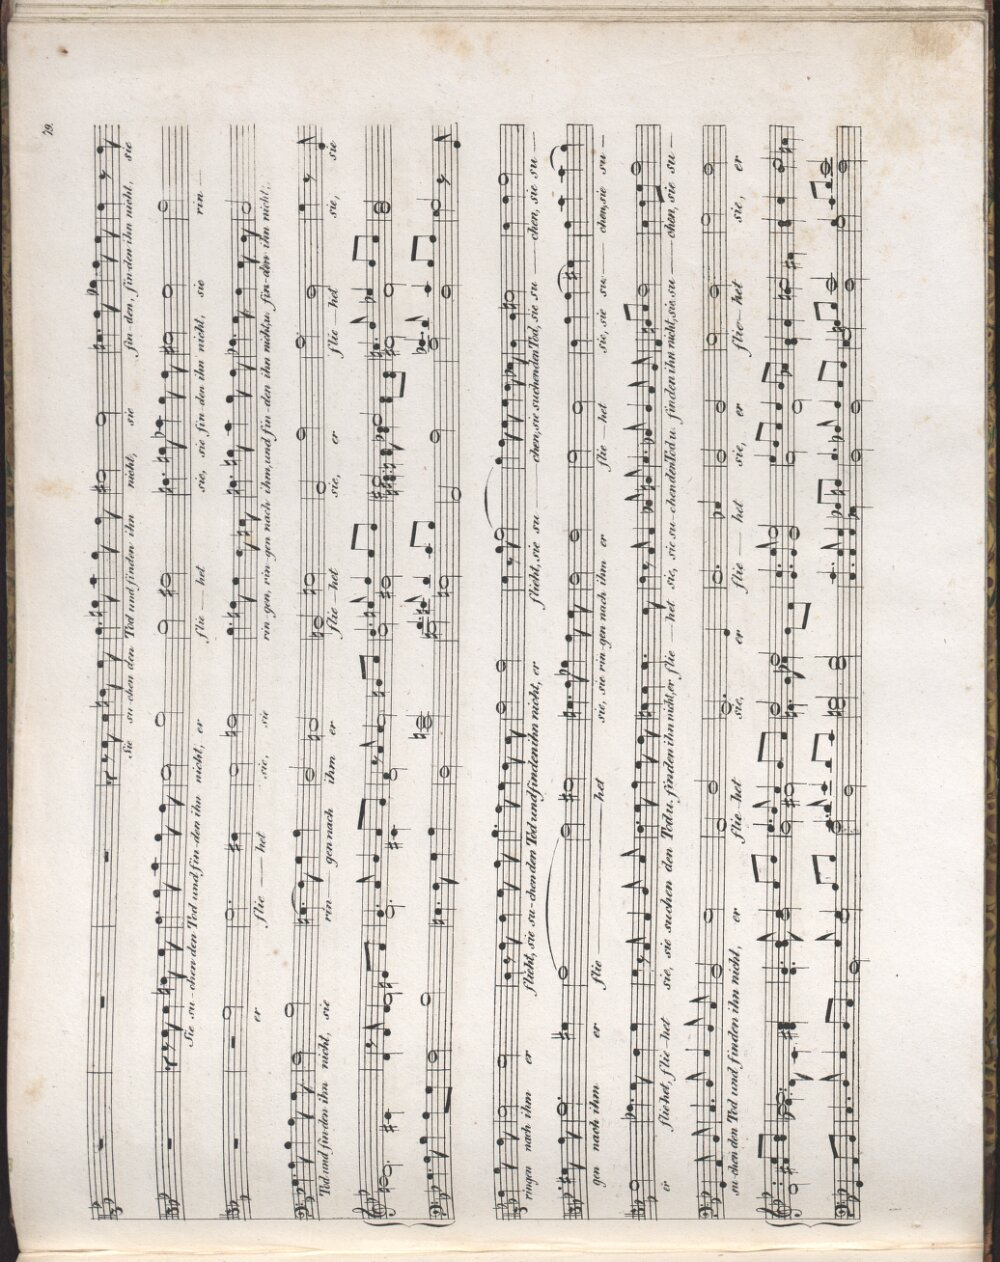 79.
Sie su-chen den Tod und finden ihn nicht, sie fin-den, fin-den ihn nicht, sie
Sie su-chen den Tod und fin-den ihn nicht, er flie-het sie, sie fin-den ihn nicht, sie rin-
er flie-het sie, sie rin-gen, rin-gen nach ihm, und fin-den ihn nicht, u. fin-den ihn nicht,
Tod und fin-den ihn nicht, sie rin-gen nach ihm er flie-het sie, er flie-het sie, sie
ringen nach ihm er flieht, sie su-chen den Tod und finden ihn nicht, er flieht, sie su-chen, sie suchen den Tod, sie su-chen, sie su-
gen nach ihm er flie-het sie, sie rin-gen nach ihm er flie het sie, sie su-chen, sie su-
er flie-het, flie-het sie, sie suchen den Tod u. finden ihn nicht, er flie-het sie, sie su-chen den Tod u. finden ihn nicht, sie su-chen, sie su-
su-chen den Tod und finden ihn nicht, er flie-het sie, er flie-het sie, er flie-het sie, er